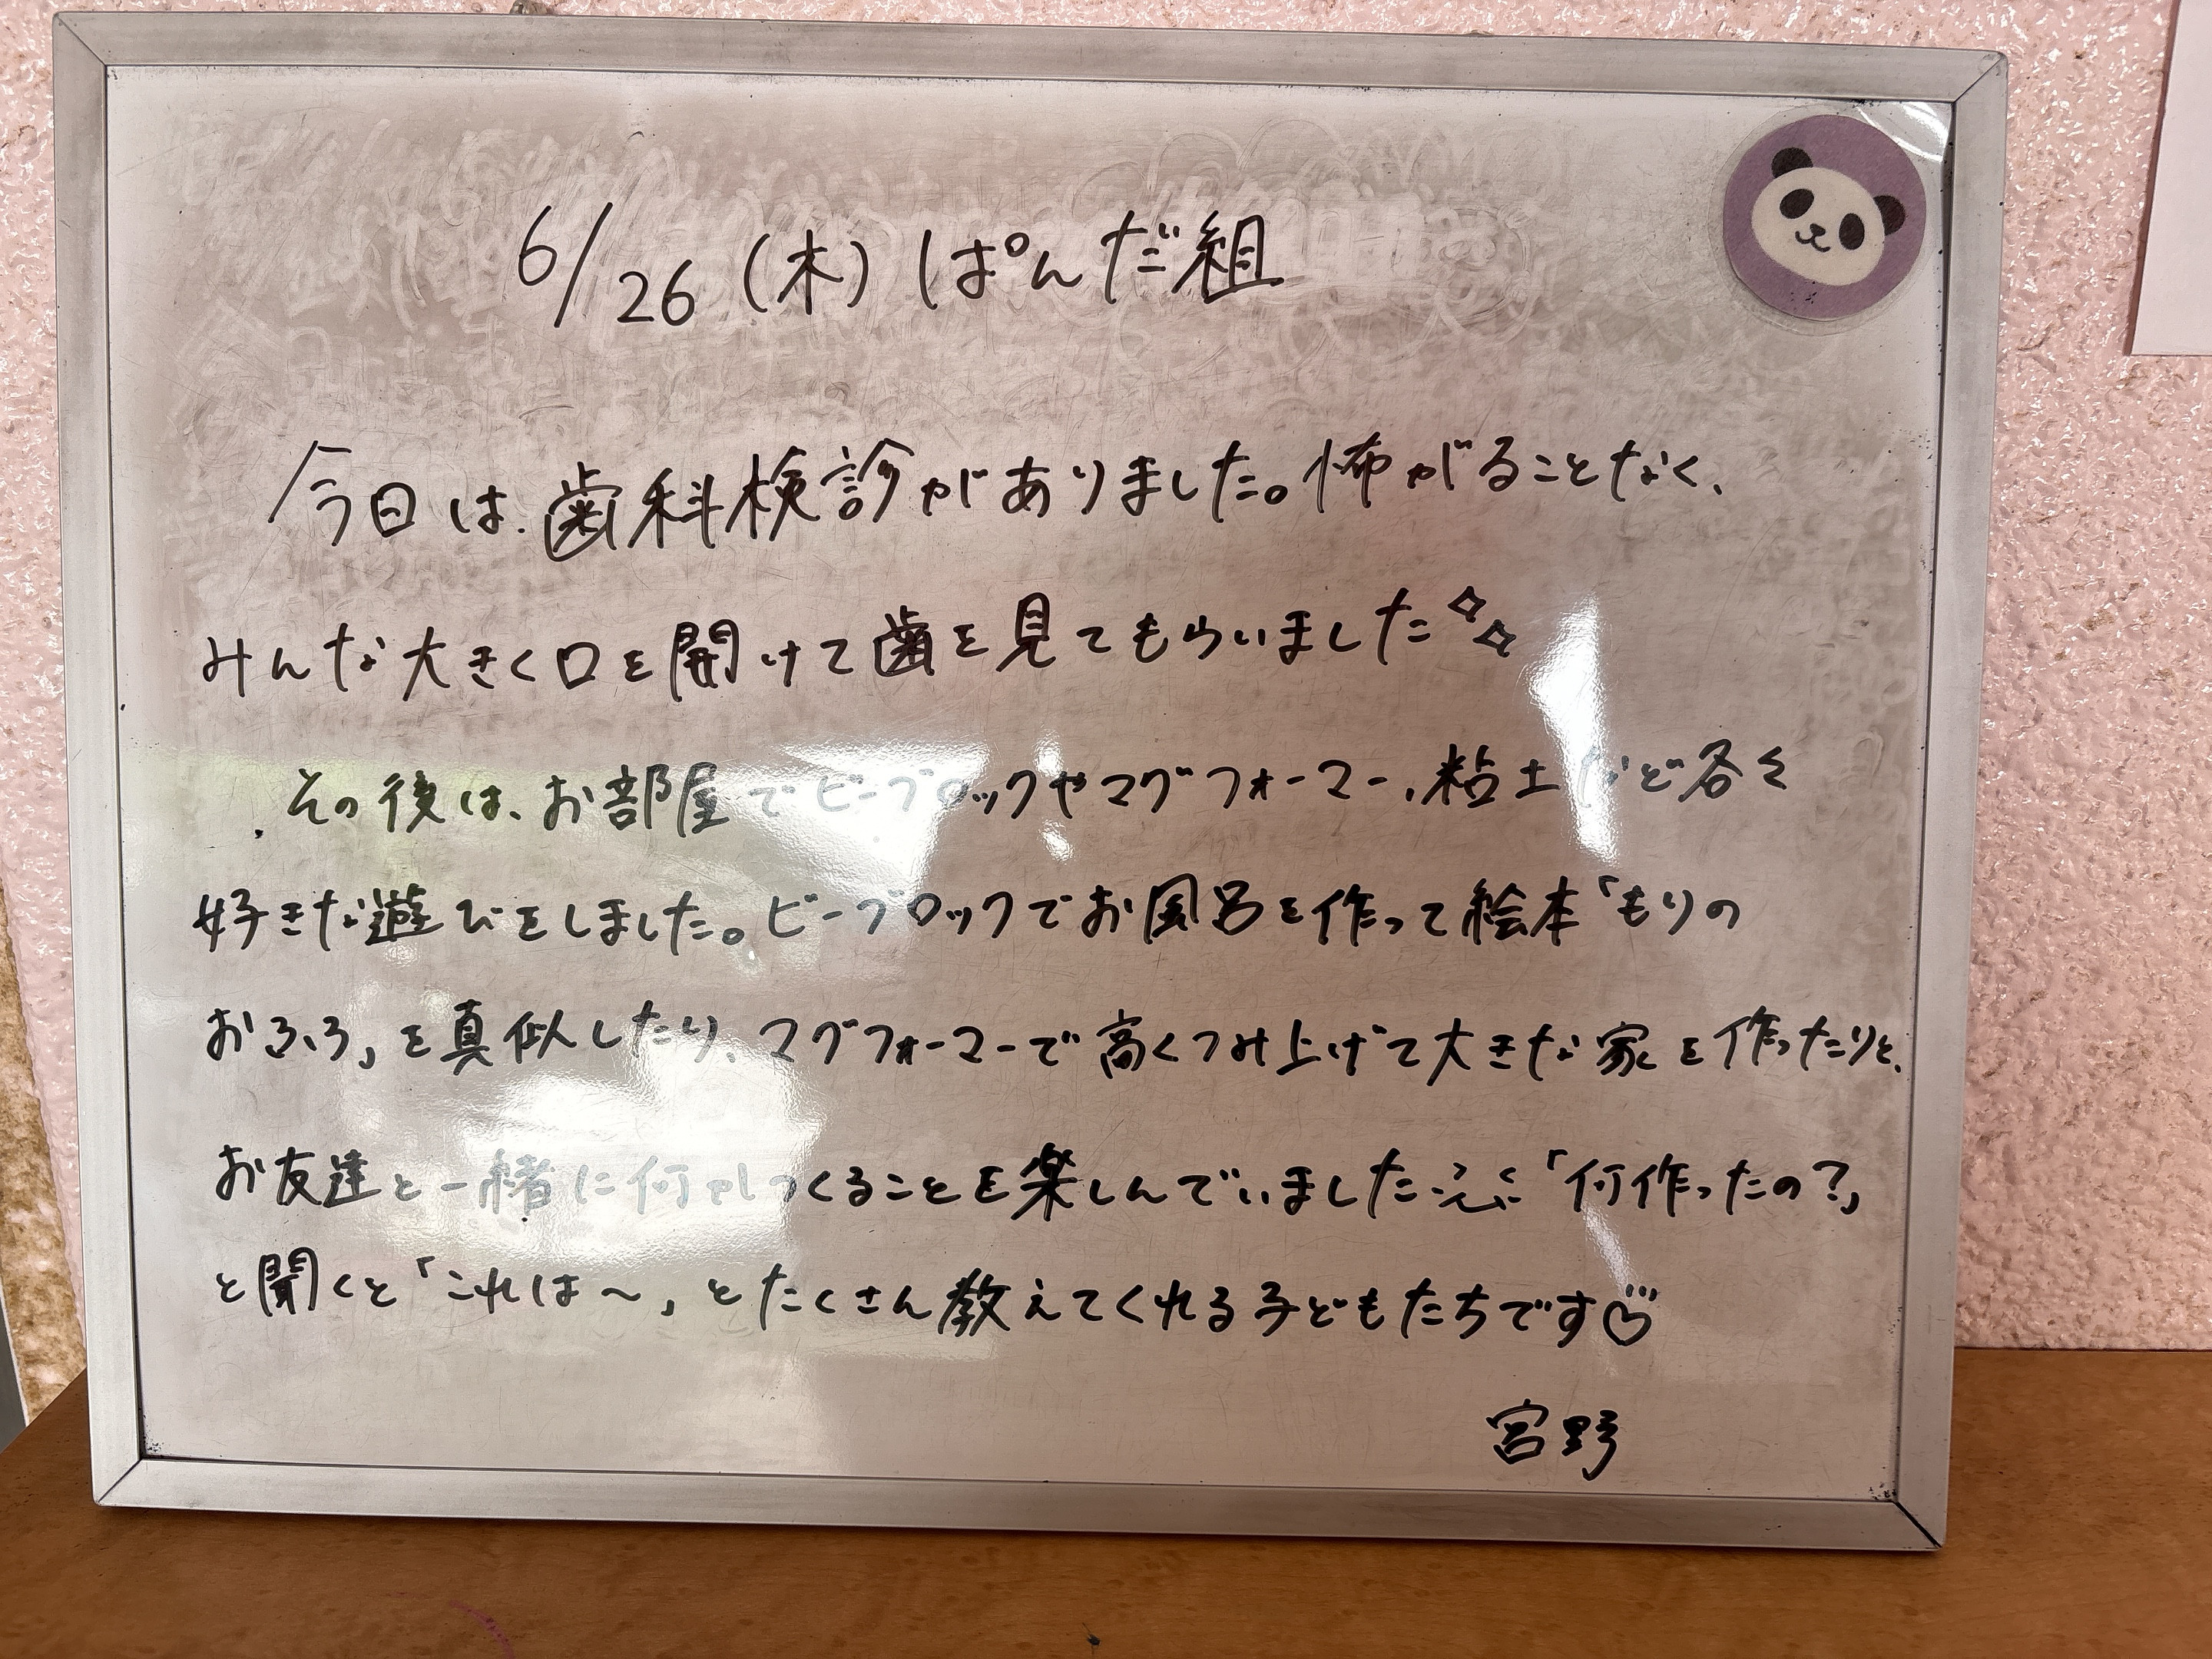 6/26(木)ぱんだ組
今日は、歯科検診がありました。怖がることなく、
みんな大きく口を開けて歯を見てもらいました
その後は、お部屋でビーブロックやマグフォーマー、粘土など各々
好きな遊びをしました。ビーブロックでお風呂を作って絵本「もりの
おふろ」を真似したり、マグフォーマーで高くつみ上げて大きな家を作ったりと、
お友達と一緒に何かしつくることを楽しんでいました「何作ったの?」
と聞くと「これは〜」とたくさん教えてくれる子どもたちです♡
宮野